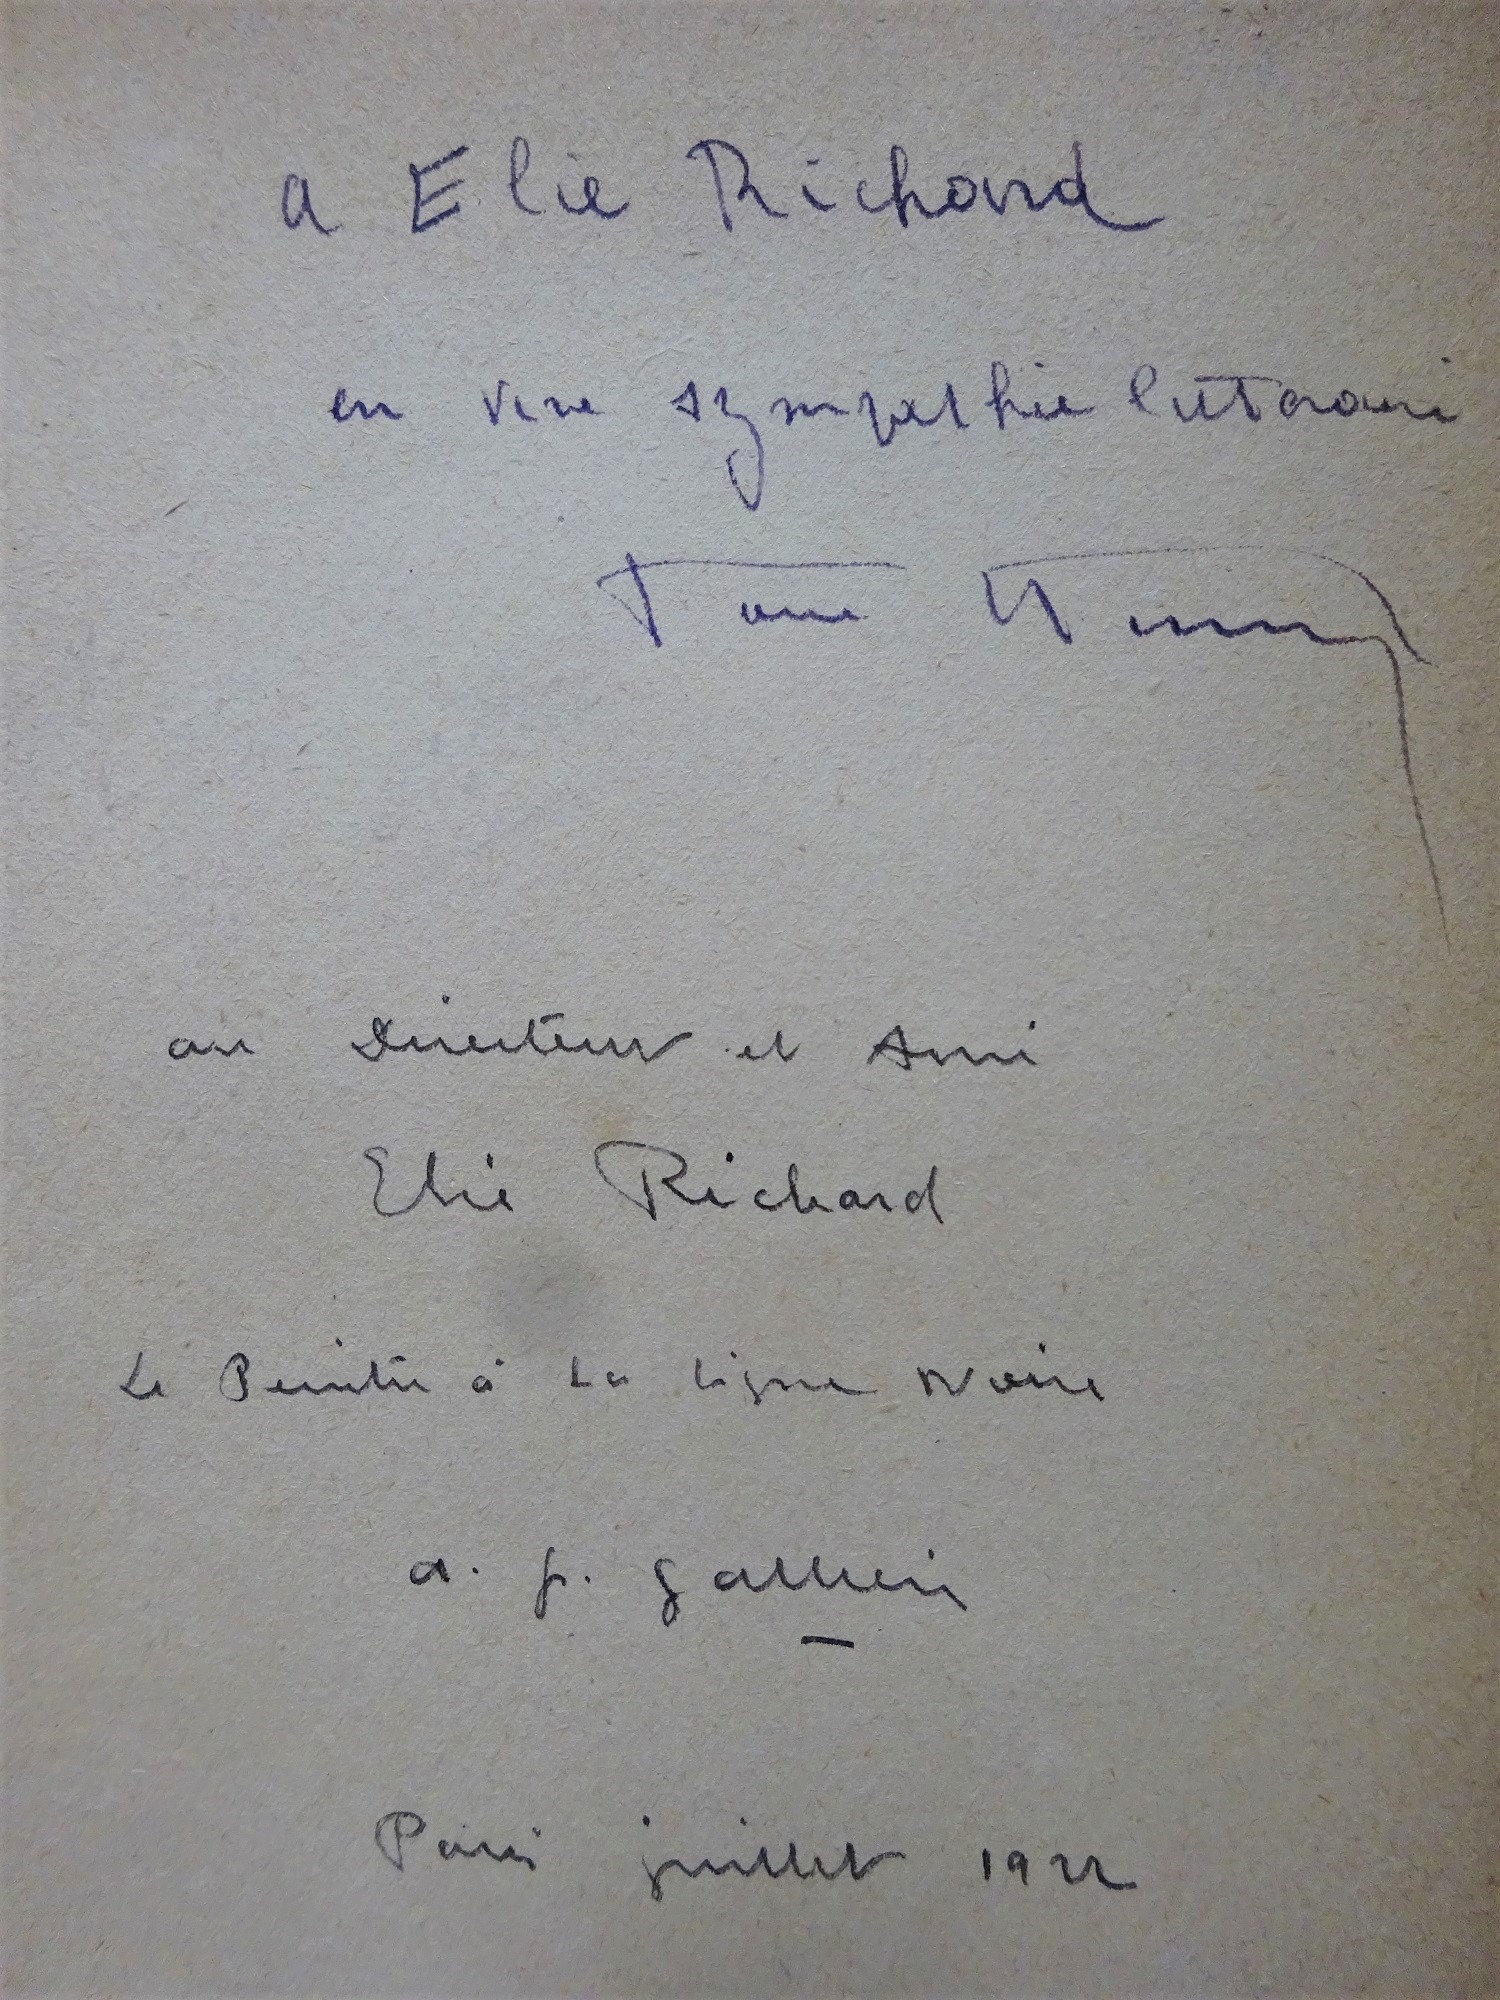 a Elie Richard
en vive sympathie littéraire
au Directeur et Ami
Elie Richard
Le Peintre à La Ligne Noire
a. p. gallien
Paris juillet 1922